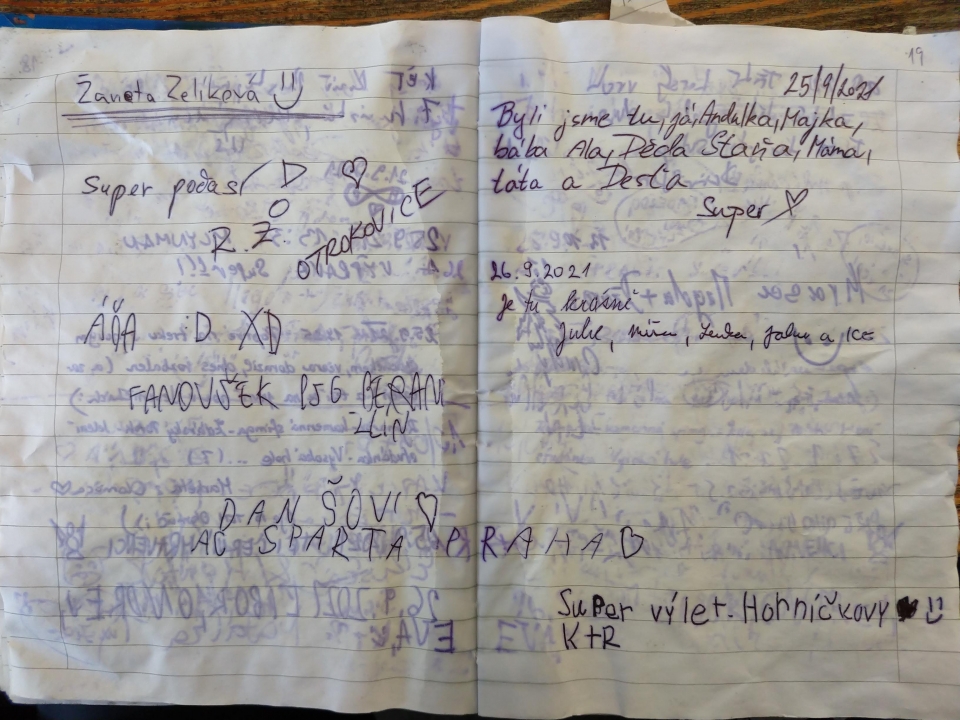 Žaneta Zelíková
Super počas
D
O
R. Ž.
OTROKOVICE
ÁŇA :D XD
FANOUŠEK PSG BERANI
ZLÍN
DAN ŠOVÍ ♡
AC SPARTA PRAHA ♡
19
25/9/2021
Byli jsme tu, já, Andulka, Majka,
bába Ala, Děda Staňa, Máma,
táta a Desťa
Super ♡
26.9.2021
Je tu krásně
Julie, a ICE
Super výlet. Horníčkovy
K+R